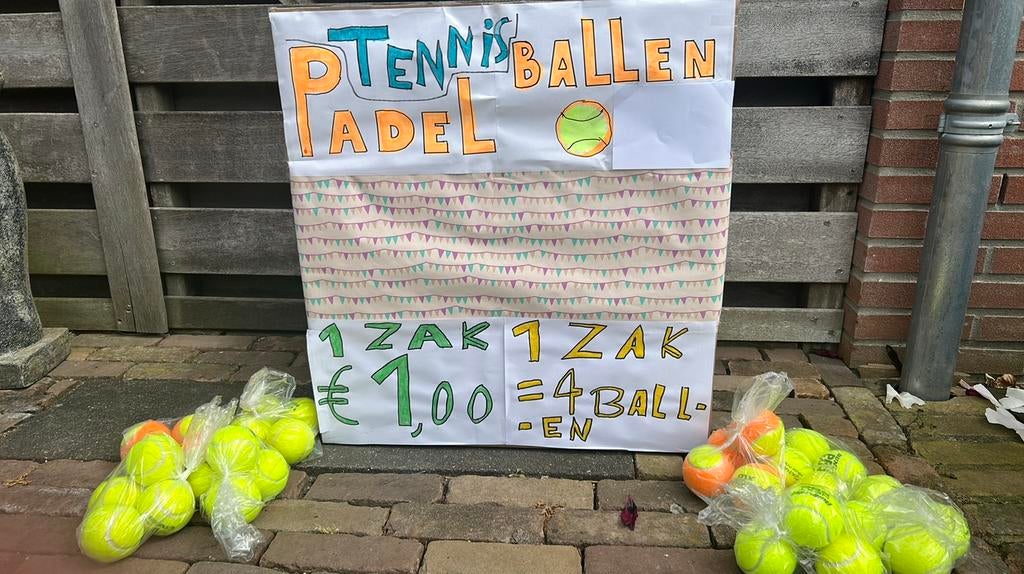 TENNIS BALLEN
PADEL
1 ZAK
€ 1,00
1 ZAK
= 4 BALL-
-EN